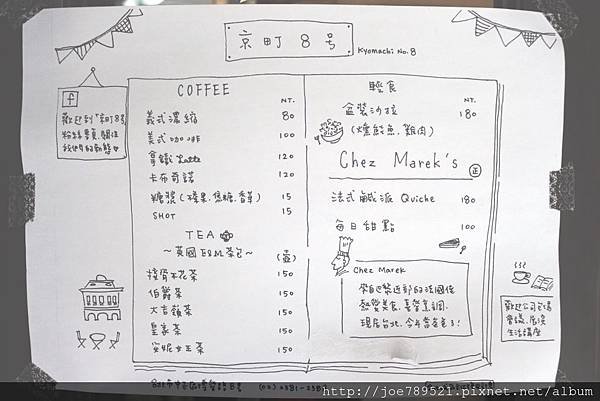 京町 8 号
Kyomachi No.8
f
歡迎到"京町8号
粉絲專頁, 關注
我們的動態
COFFEE
NT.
義式濃縮 80
美式咖啡 100
拿鐵 Latte 120
卡布奇諾 120
糖漿(榛果.焦糖.香草) 15
SHOT 15
TEA
~英國 E&M 茶包~ (壺)
接骨木花茶 150
伯爵茶 150
大吉嶺茶 150
皇家茶 150
安妮女王茶 150
輕食
NT.
盒裝沙拉 180
(燻鮭魚.雞肉)
Chez Marek's
正
法式鹹派 Quiche 180
每日甜點 100
Chez Marek
來自巴黎近郊的法國佬
熱愛美食.喜營烹調.
現居台北.
歡迎公司包場
會議.展演
生活講座
http://joe789521.pixnet.net/album